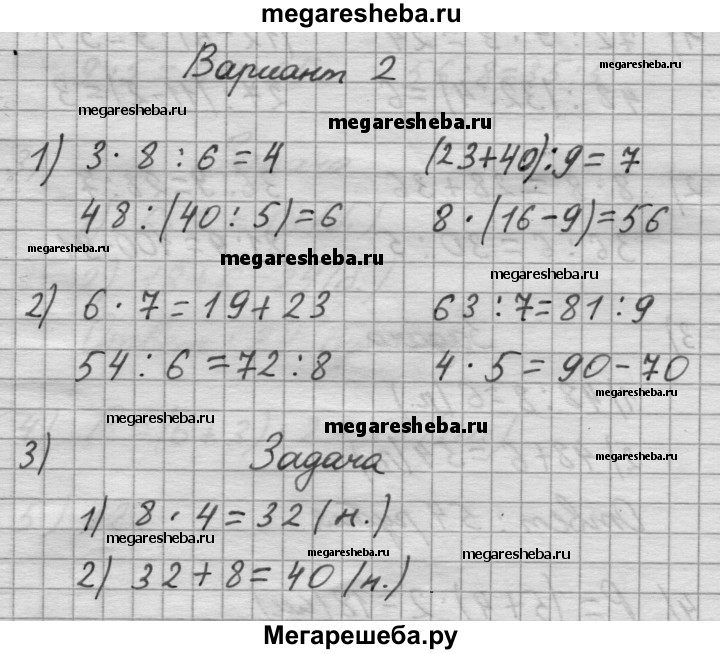 megaresheba.ru
Вариант 2
megaresheba.ru
megaresheba.ru
megaresheba.ru
1) 3 · 8 : 6 = 4 (23+40) : 9 = 7
48 : (40 : 5) = 6 8 · (16 - 9) = 56
megaresheba.ru
megaresheba.ru
megaresheba.ru
2) 6 · 7 = 19 + 23 63 : 7 = 81 : 9
54 : 6 = 72 : 8 4 · 5 = 90 - 70
megaresheba.ru
megaresheba.ru
megaresheba.ru
3) Задача
megaresheba.ru
1) 8 · 4 = 32 (н.)
megaresheba.ru
megaresheba.ru
megaresheba.ru
2) 32 + 8 = 40 (н.)
Мегарешеба.ру